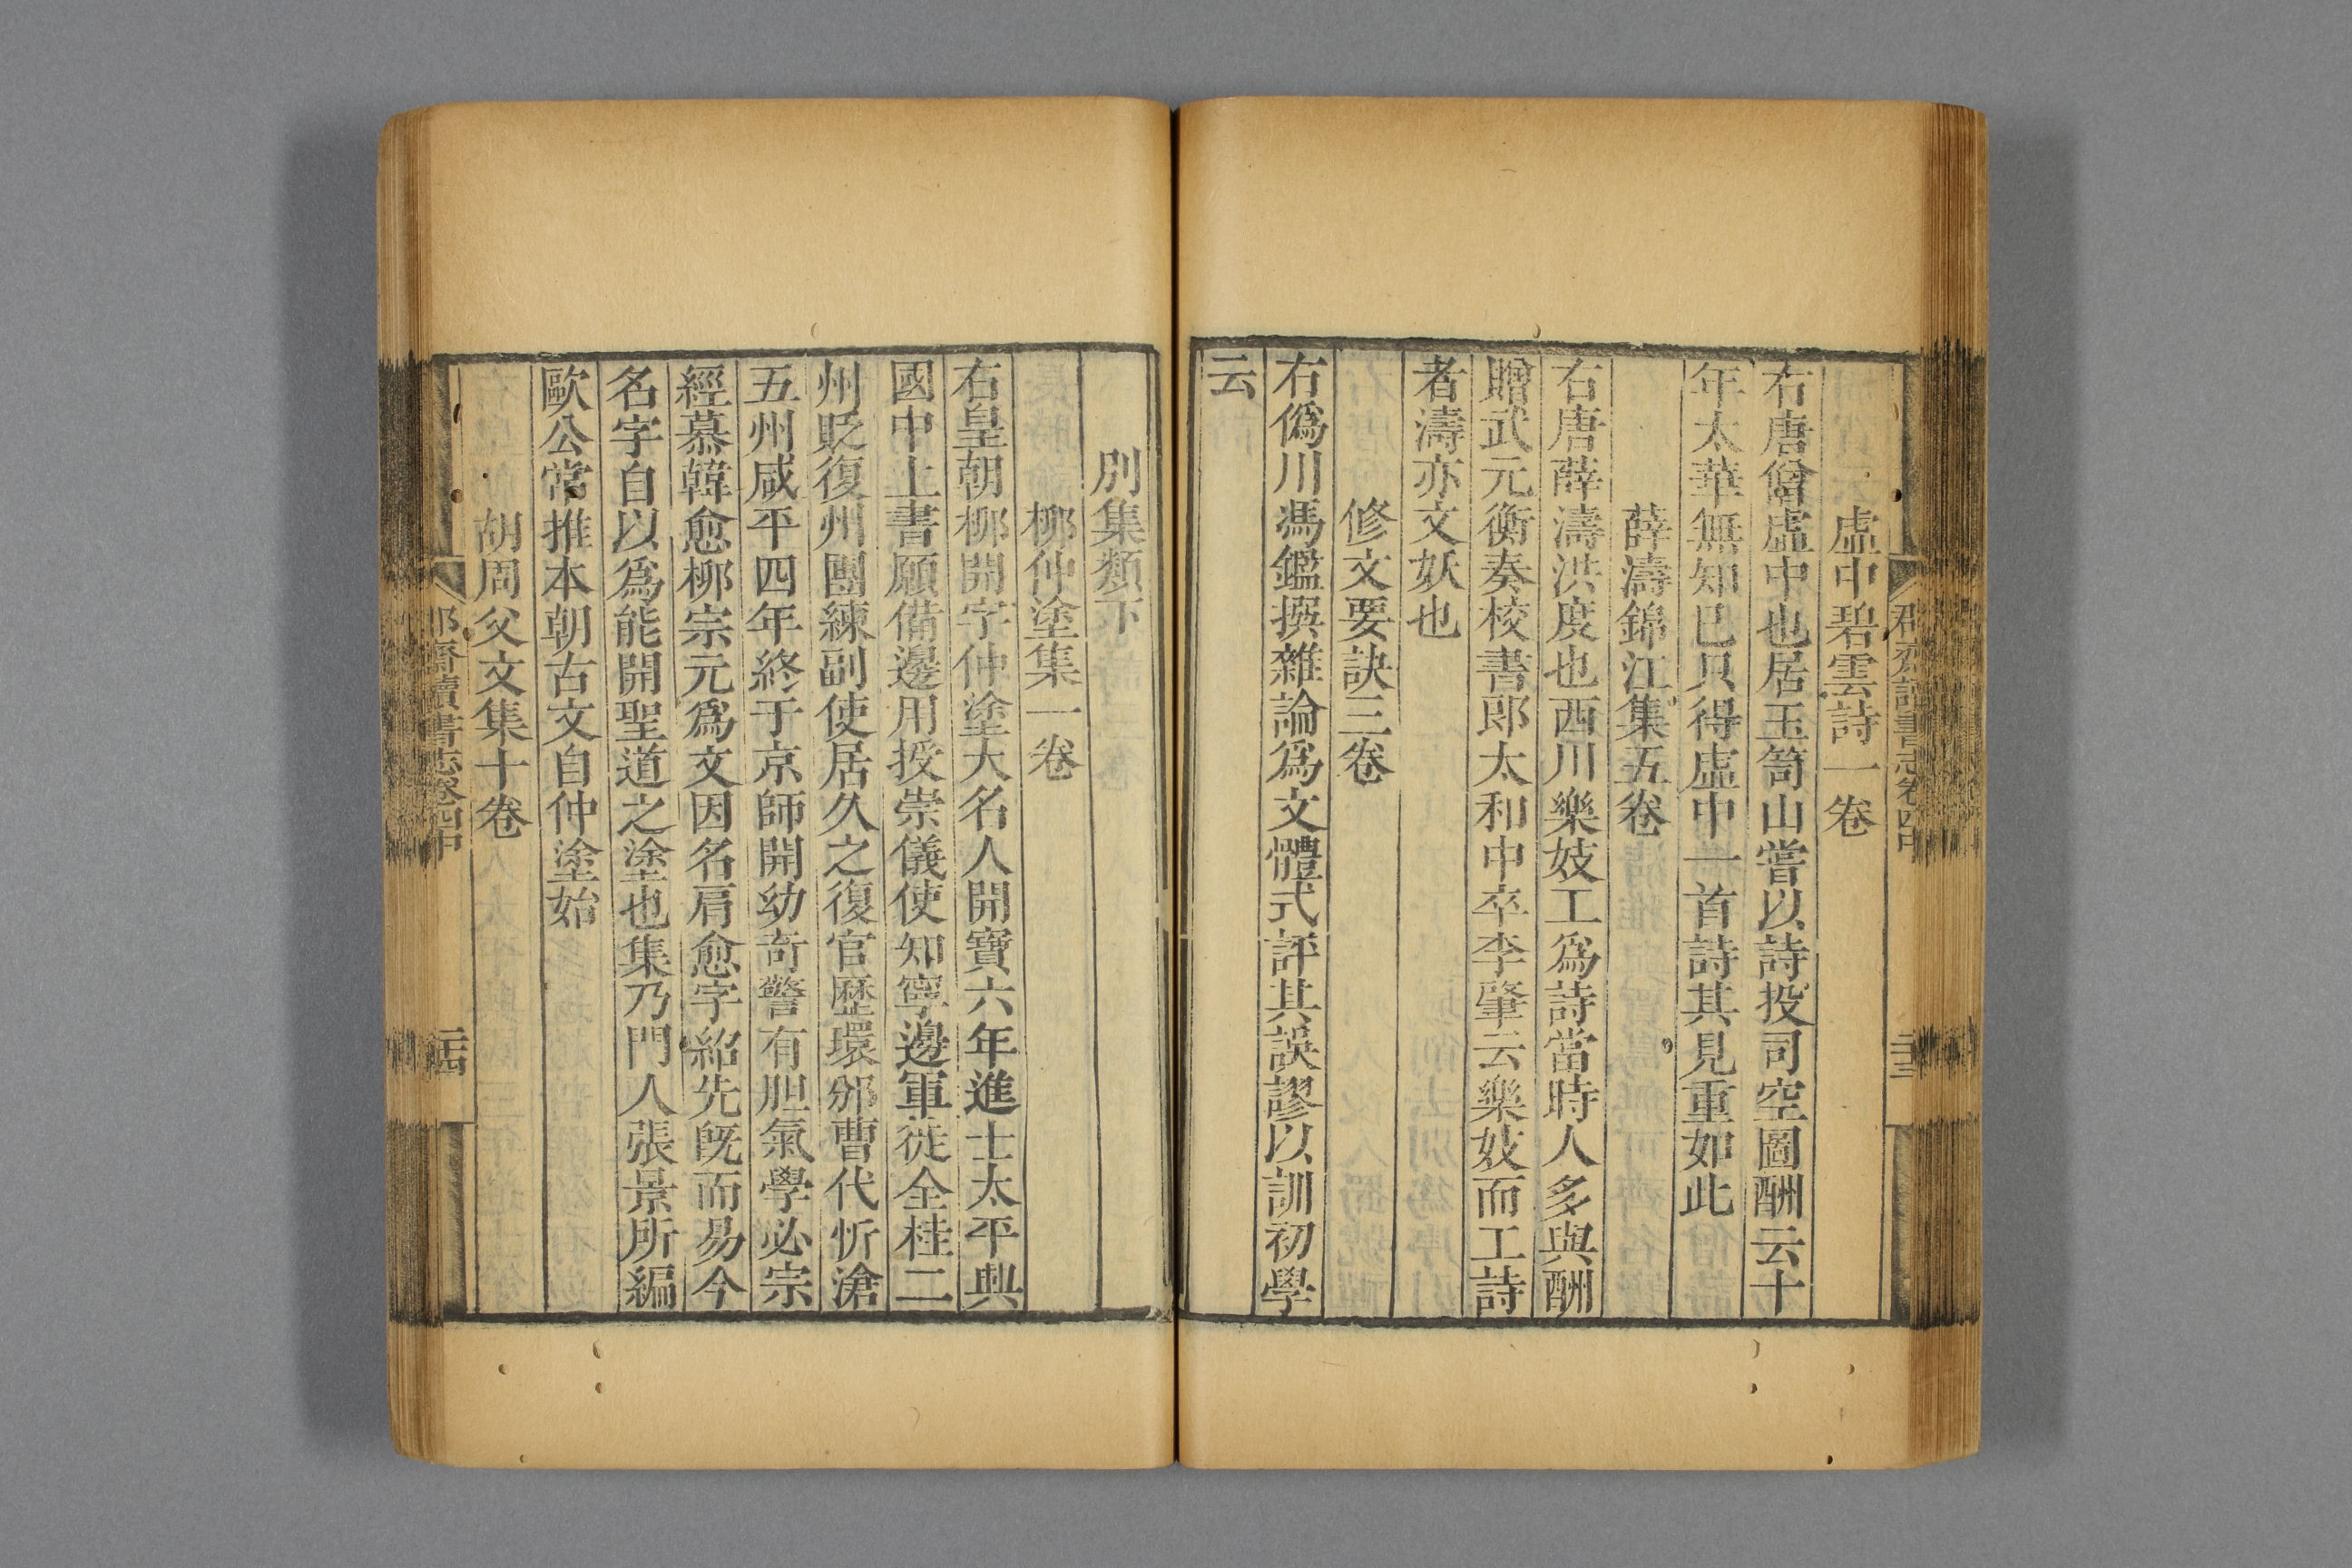 虛中碧雲詩一卷
右唐僧虛中也居玉笥山嘗以詩投司空圖酬云十
年太華無知已只得虛中一首詩其見重如此
薛濤錦江集五卷
右唐薛濤洪度也西川樂妓工爲詩當時人多與酬
贈武元衡奏校書郎太和中卒李肇云樂妓而工詩
者濤亦文妖也
修文要訣三卷
右僞川馮鑑撰雜論爲文體式評其誤謬以訓初學
云
別集類下
柳仲塗集一卷
右皇朝柳開字仲塗大名人開寶六年進士太平興
國中上書願備邊用授崇儀使知寧邊軍徙全桂二
州貶復州團練副使居久之復官歷環邠曹代忻滄
五州咸平四年終于京師開幼奇警有胆氣學必宗
經慕韓愈柳宗元爲文因名肩愈字紹先旣而易今
名字自以爲能開聖道之塗也集乃門人張景所編
歐公常推本朝古文自仲塗始
胡周父文集十卷